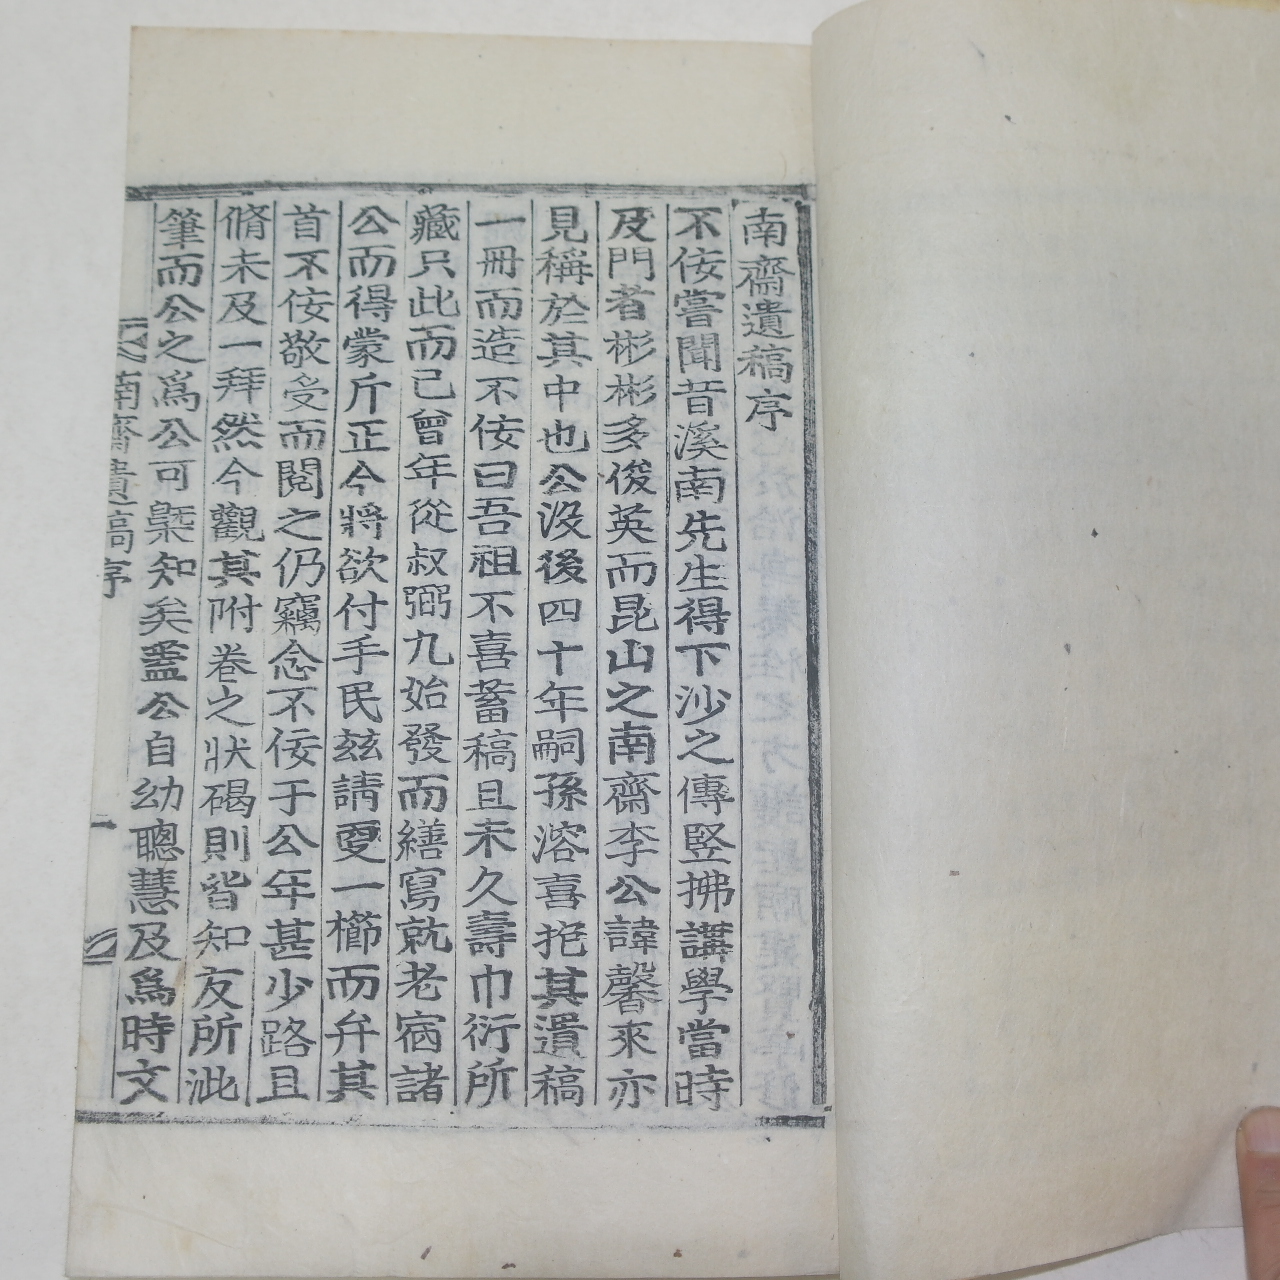 南齋遺稿序
不侫嘗聞昔溪南先生得下沙之傳竪拂講學當時
及門者彬彬多俊英而昆山之南齋李公諱馨來亦
見稱於其中也公沒後四十年嗣孫溶喜抱其遺稿
一冊而造不侫曰吾祖不喜蓄稿且未久壽巾衍所
藏只此而已曾年從叔弼九始發而繕寫就老宿諸
公而得蒙斤正今將欲付手民玆請更一櫛而弁其
首不侫敬受而閱之仍竊念不侫于公年甚少路且
脩未及一拜然今觀其附卷之狀碣則皆知友所泚
筆而公之爲公可槩知矣盖公自幼聰慧及爲時文
南齋遺稿序
一